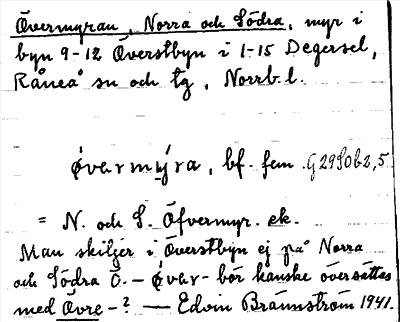 Övermyran, Norra och Södra, myr i
byn 9-12 Överstbyn i 1-15 Degersel,
Råneå sn och tg, Norrb. l.
øvarmy̆ra, bf. fem. G29S0b2,5
= N. och S. Öfvermyr. ek.
Man skiljer i Överstbyn ej på Norra
och Södra Ö. – øvar- bör kanske översättas
med Övre-? — Edvin Brännström 1941.